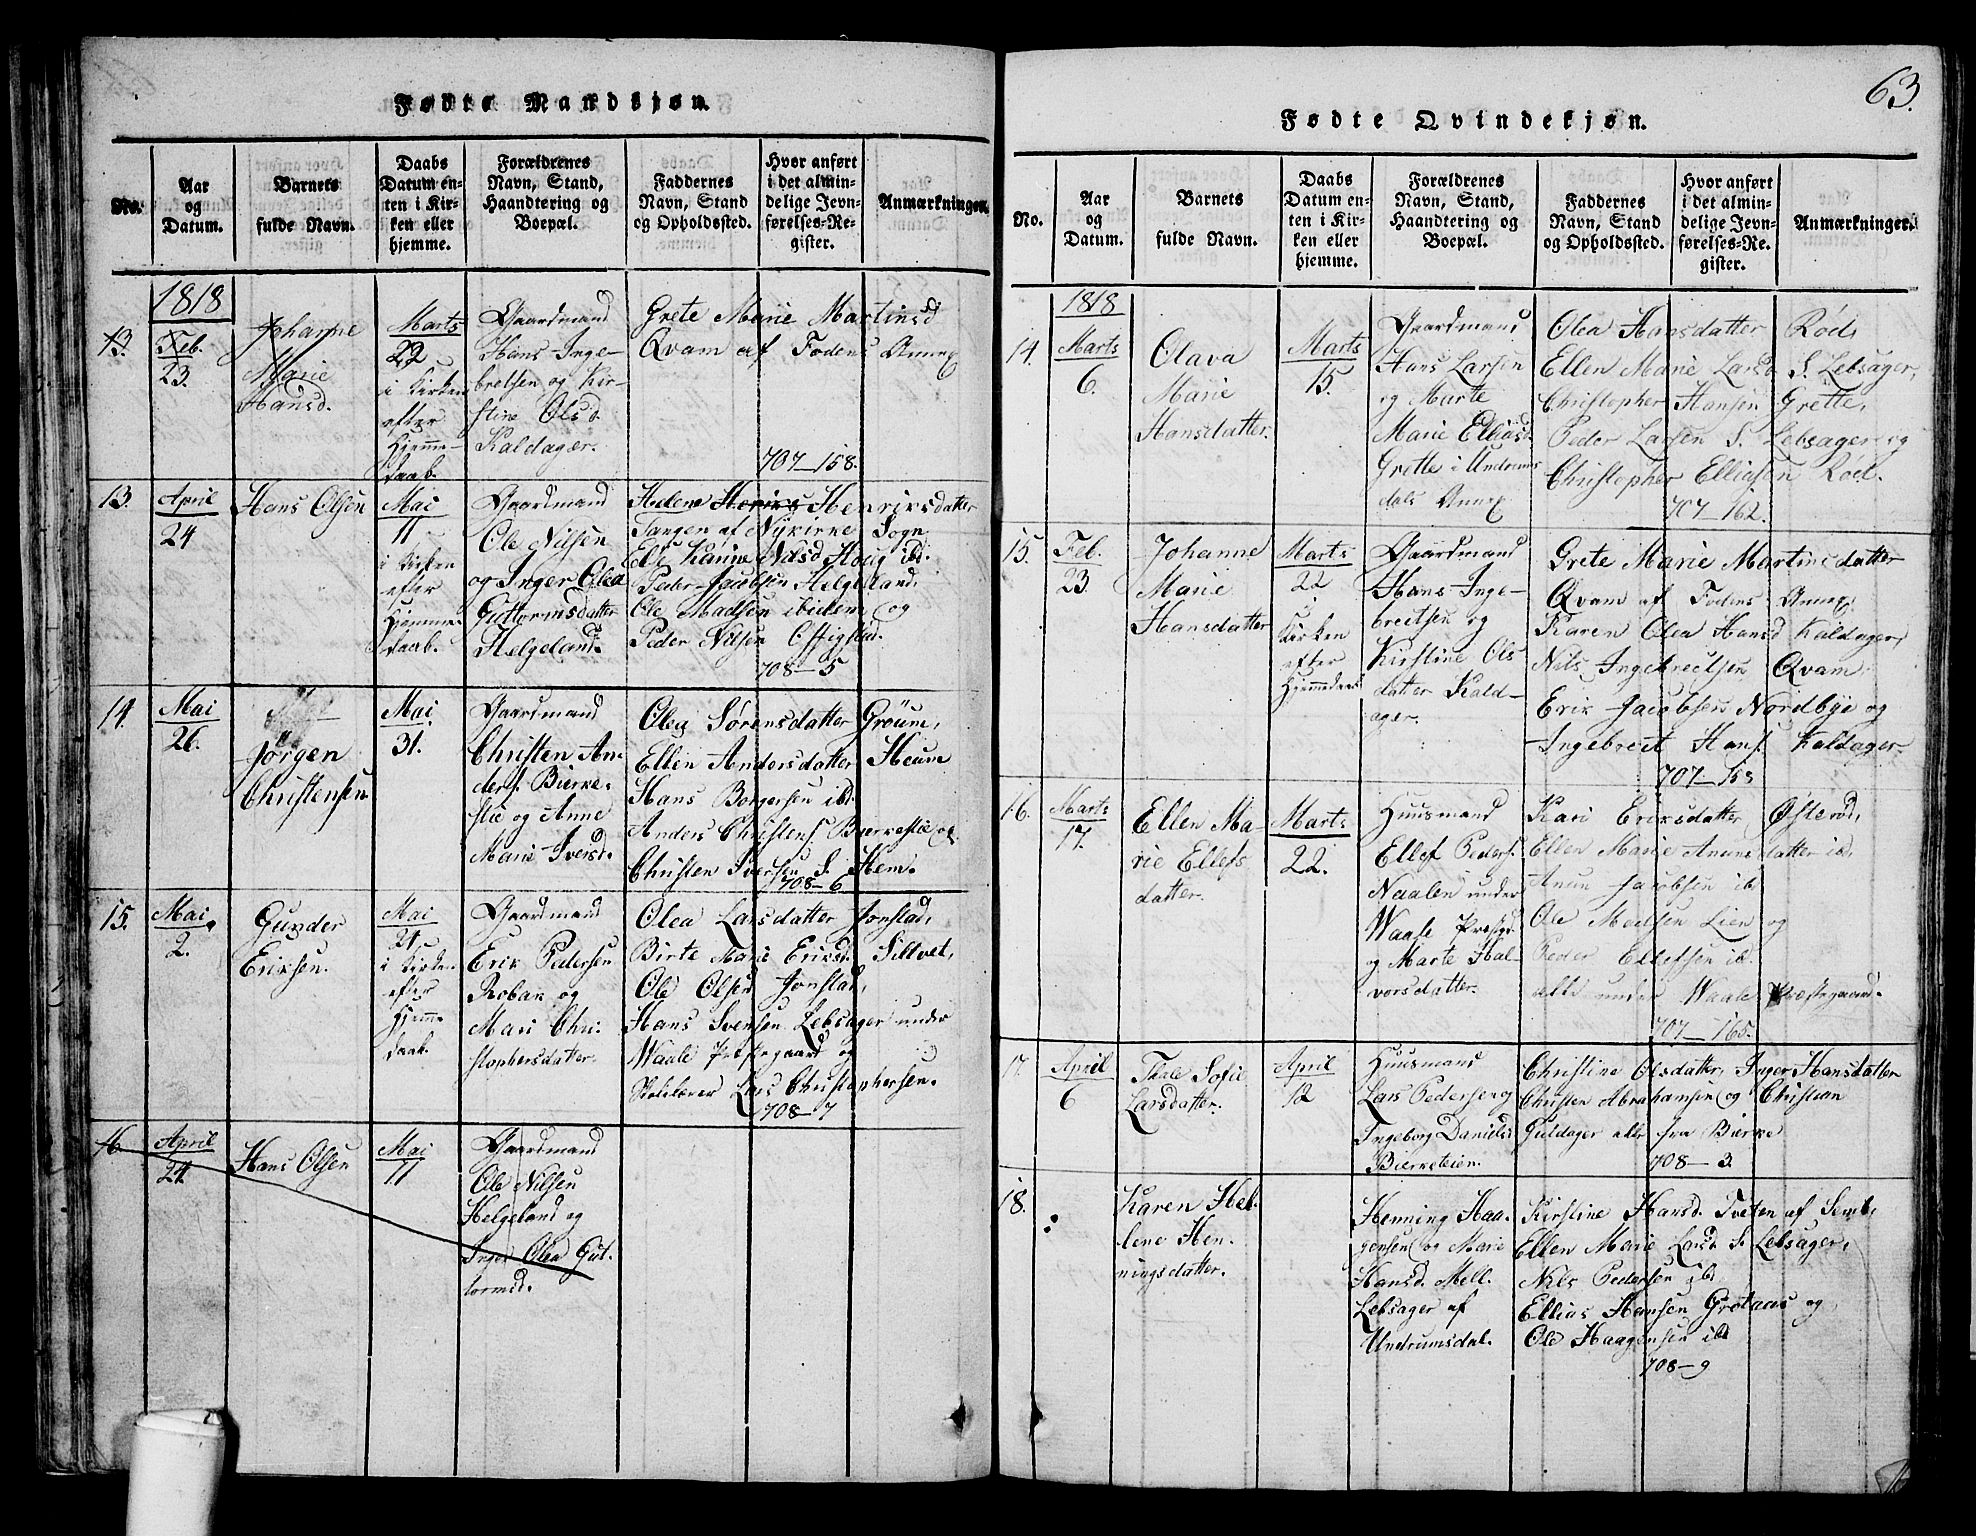 Fødte Mandkjøn.
No.
Aar
og
Datum.
Barnets
fulde Navn.
Daabs
Datum en-
ten i Kir-
ken eller
hjemme.
Forældrenes
Navn, Stand,
Haandtering og
Boepæl.
Faddernes
Navn, Stand
og Opholdssted.
Hvor anført
i det almin-
delige Jevn-
førelses-Re-
gister.
Anmærkninger.
1818
13.
Feb.
23.
Johanne
Marie
Hansd.
Marts
22
i Kirken
efter
Hjemme-
daab.
Gaardmand
Hans Inge-
bretsen og Kir-
stine Olsd.
Kaldager.
Grete Marie Martinsd
Qvam af Fodens Annex
707-158.
13.
April
24
Hans Olsen
Mai
11
i Kirken
efter
Hjemme-
daab.
Gaardmand
Ole Nilsen
og Inger Olea
Guttormsdatter
Helgeland.
Helene Henriksdatter
Tangen af Nykirke Sogn
Else Karine Nilsd Houg ibd.
Peder Jacobsen Helgeland,
Ole Madsen ibidem og
Peder Nilsen
708-5
14.
Mai
26.
Jörgen
Christensen
Mai
31.
Gaardmand
Christen An-
ders. Bierke-
stie og Anne
Marie Iversd.
Olea Sörensdatter Gröum,
Ellen Andersdatter Heum
Hans Borgersen ibd.
Anders Christens. Bierkestie og
Christen Iversen S. Hem.
708-6
15.
Mai
2.
Gunder
Eriksen.
Mai
21
i Kirken
efter
Hjemme
daab.
Gaardmand
Erik Pedersen
Roban og
Mari Chri-
stophersdatter.
Olea Larsdatter Jonstad,
Birte Marie Eriksd. Siltvet,
Ole Olsen Jonstad,
Hans Svensen Lebsager under
Waale Prestegaard og
Skolelærer Lars Christophersen.
708-7
16
April
24
Hans Olsen
Mai
11
Gaardmand
Ole Nilsen
Helgeland og
Inger Olea Gut-
tormsd.
63.
Fødte Qvindekjøn.
No.
Aar
og
Datum.
Barnets
fulde Navn.
Daabs
Datum en-
ten i Kir-
ken eller
hjemme.
Forældrenes
Navn, Stand,
Haandtering og
Boepæl.
Faddernes
Navn, Stand
og Opholdssted.
Hvor anført
i det almin-
delige Jevn-
førelses-Re-
gister.
Anmærkninger.
1818
14.
Marts
6.
Olava
Marie
Hansdatter.
Marts
15.
Gaardmand
Hans Larsen
og Marte
Marie Elliasd.
Grette i Undrums
dals Annex
Olea Hansdatter Röd,
Ellen Marie Larsd S. Lebsager,
Christopher Hansen Grette,
Peder Larsen S. Lebsager og
Christopher Elliasen Röd.
707-162.
15.
Feb.
23.
Johanne
Marie
Hansdatter
Marts
22
i Kirken
efter
Hjemmedaab
Gaardmand
Hans Inge-
breitsen og
Kirstine Ols
datter Kald-
ager.
Grete Marie Martinsdatter
Qvam af Fodens Annex,
Karen Olea Hansd Kaldager,
Nils Ingebreitsen Qvam.
Erik Jacobsen Nordbye og
Ingebreit Hans. Kaldager
707-158
16.
Marts
17.
Ellen Ma-
rie Ellefs
datter.
Marts
22.
Huusmand
Ellef Peders.
Naalen under
Waale Prestgd.
og Marte Hal-
vorsdatter.
Kari Eriksdatter Østeröd,
Ellen Marie Anunsdatter ib,
Anun Jacobsen ib
Ole Madsen Lien og
Peder Ellefsen ib.
alle under Waale Præstegaard.
707-165.
17.
April
6
Thale Sofie
Larsdatter.
April
12
Huusmand
Lars Pedersen og
Ingeborg Daniels
Bierketeien.
Christine Olsdatter, Inger Hansdatter
Christen Abrahamsen og Christian
Guldager alle fra Bierke
708-3.
18.
Karen Hel-
lene Hen-
ningsdatter.
Henning Haa-
gensen og Marie
Hansd. Mell.
Lebsager af
Undrumsdal.
Kirstine Hansd. Tveten af Semb,
Ellen Marie Larsd. S. Lebsager,
Nils Pedersen ibd
Ellias Hansen Grotaas og
Ole Haagensen ibd
708-9